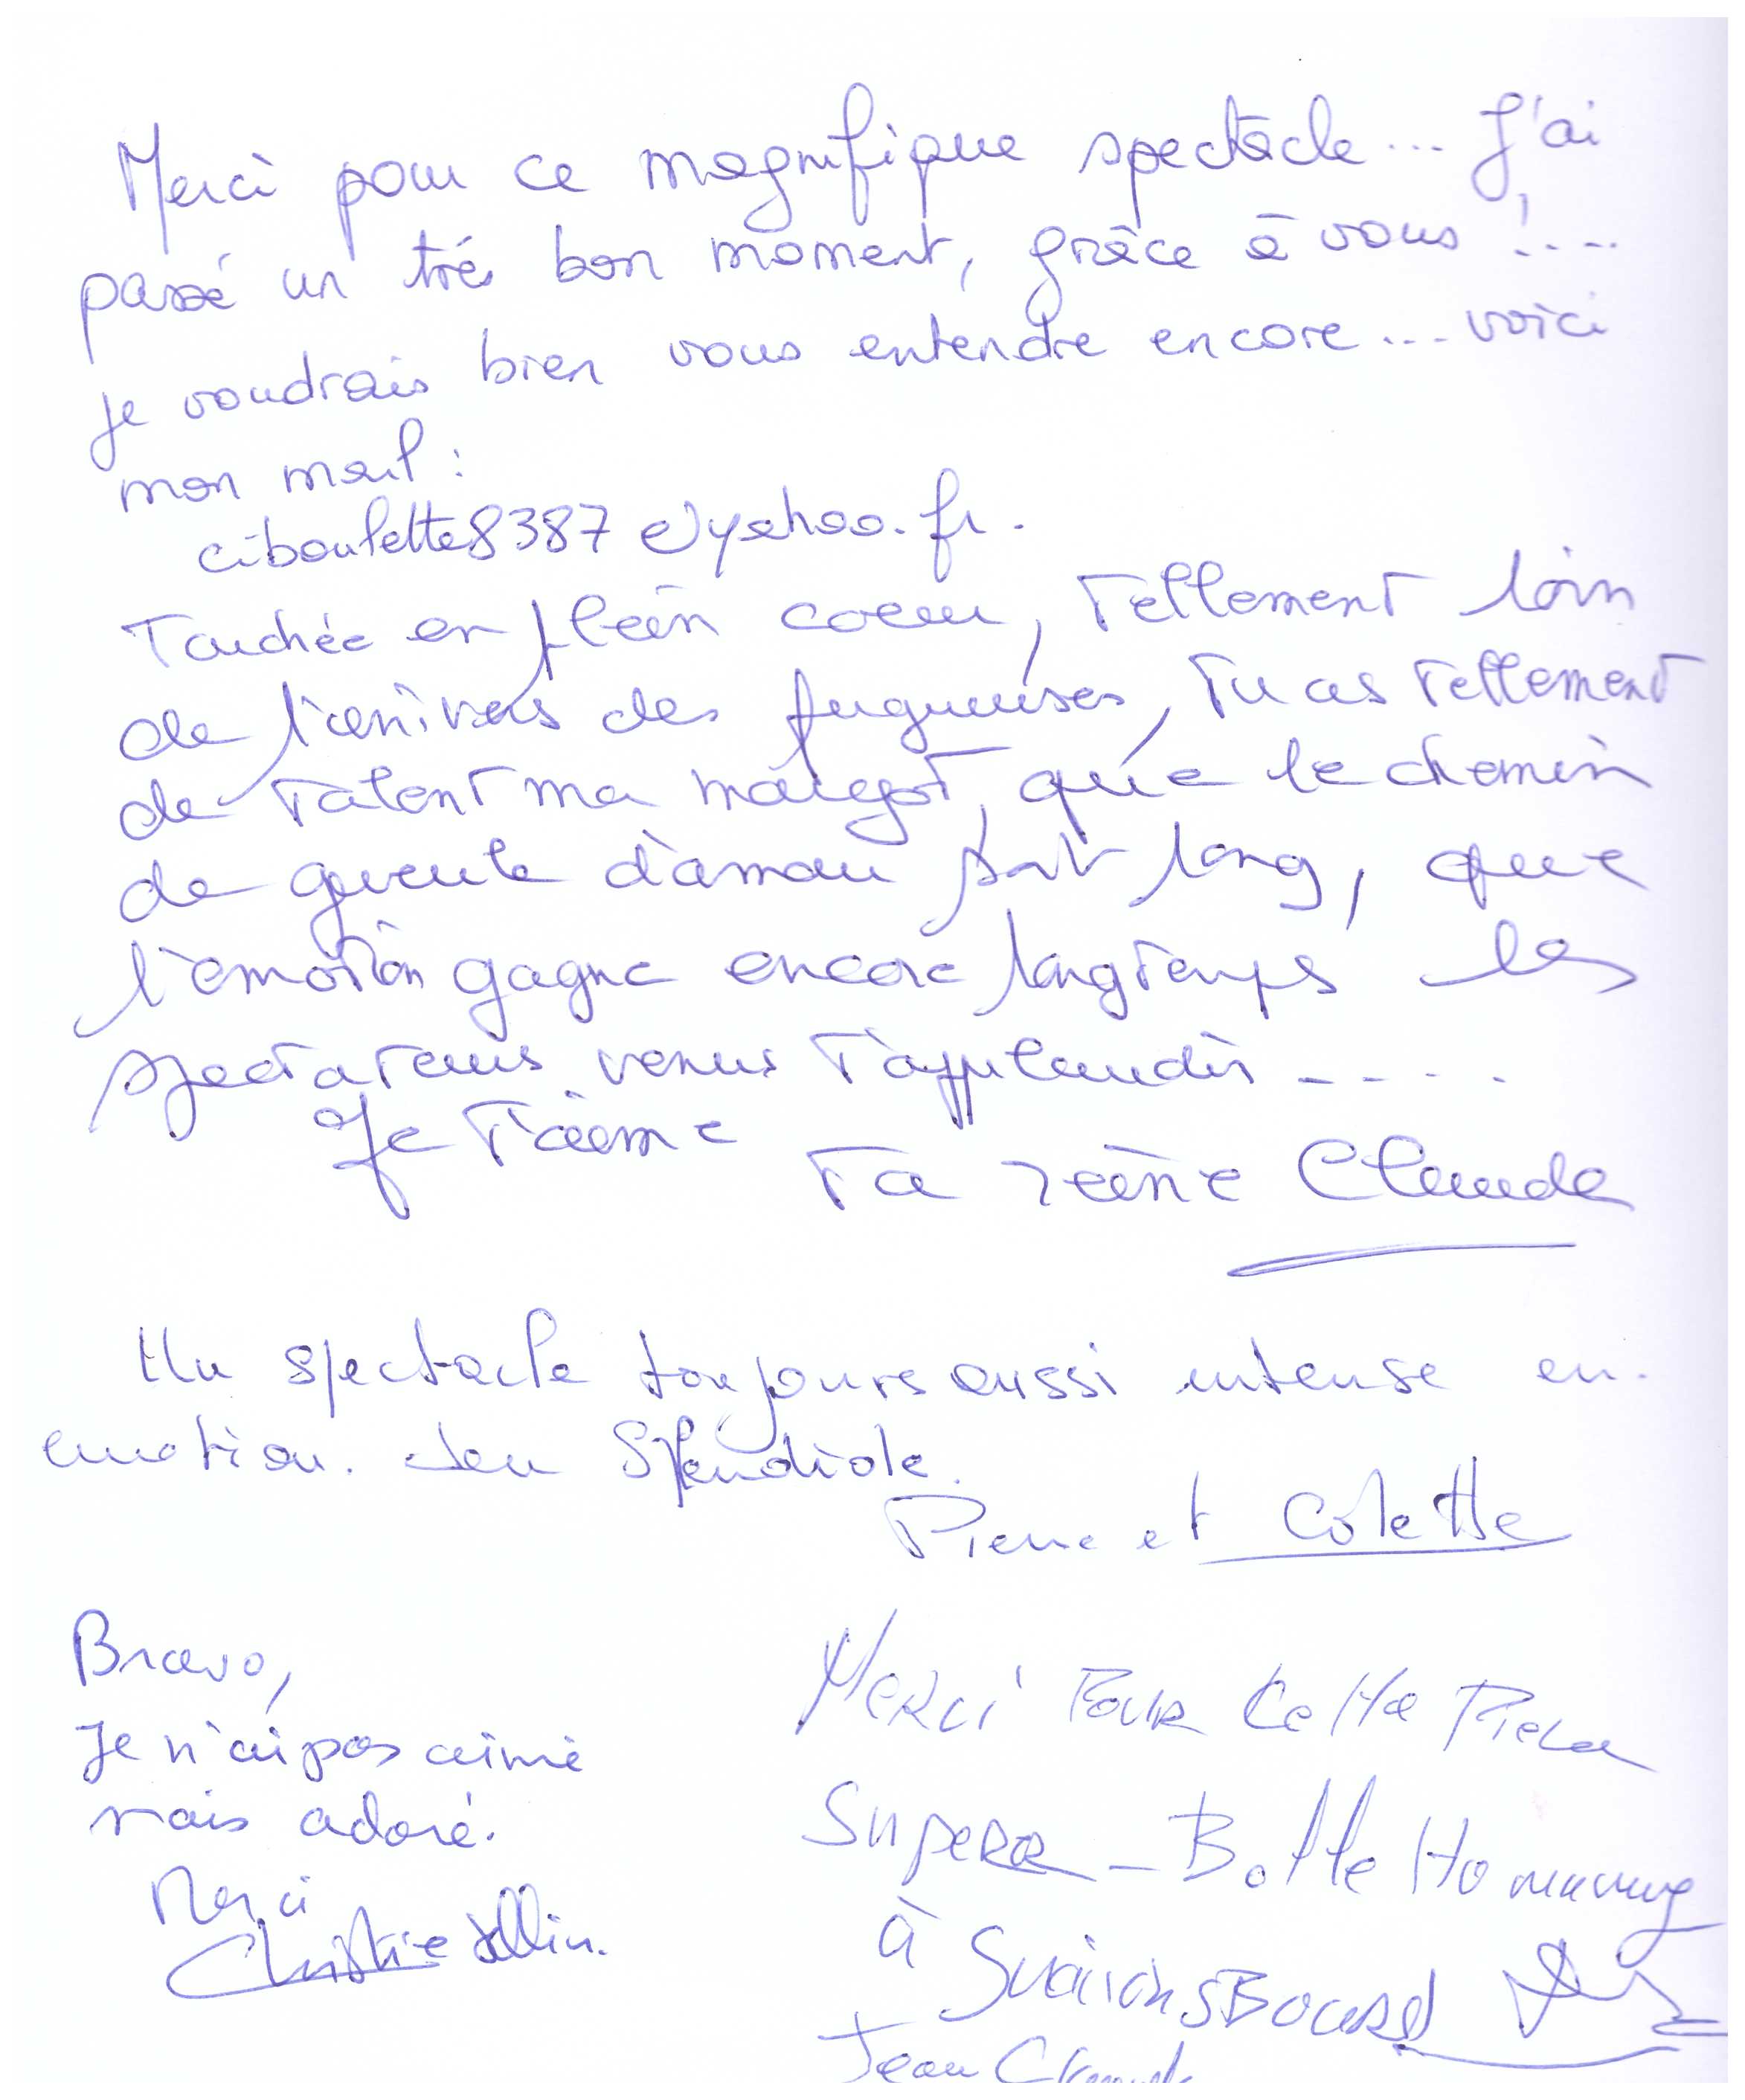 Merci pour ce magnifique spectacle... J'ai
passé un trés bon moment, grâce à vous !....
je voudrais bien vous entendre encore.... voici
mon mail :
ciboulette8387@yahoo.fr.
Touchée en plein coeur, tellement loin
de l'univers des fugueuses, tu as tellement
de talent ma margot, que le chemin
de gueule d'amour soit long, que
l'émotion gagne encore longtemps les
spectateurs venus t'applaudir ....
Je t'aime
Ta reine Claude
Un spectacle toujours aussi intense en
emotion. Jeu Splendide.
Pierre et Colette
Bravo,
Je n'ai pas aimé
mais adoré.
Merci
Christine
Merci Pour Cette Piece
Superbe - Belle Hommage
à Simone
Jean Claude